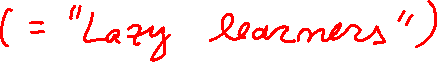 (= "Lazy learners")